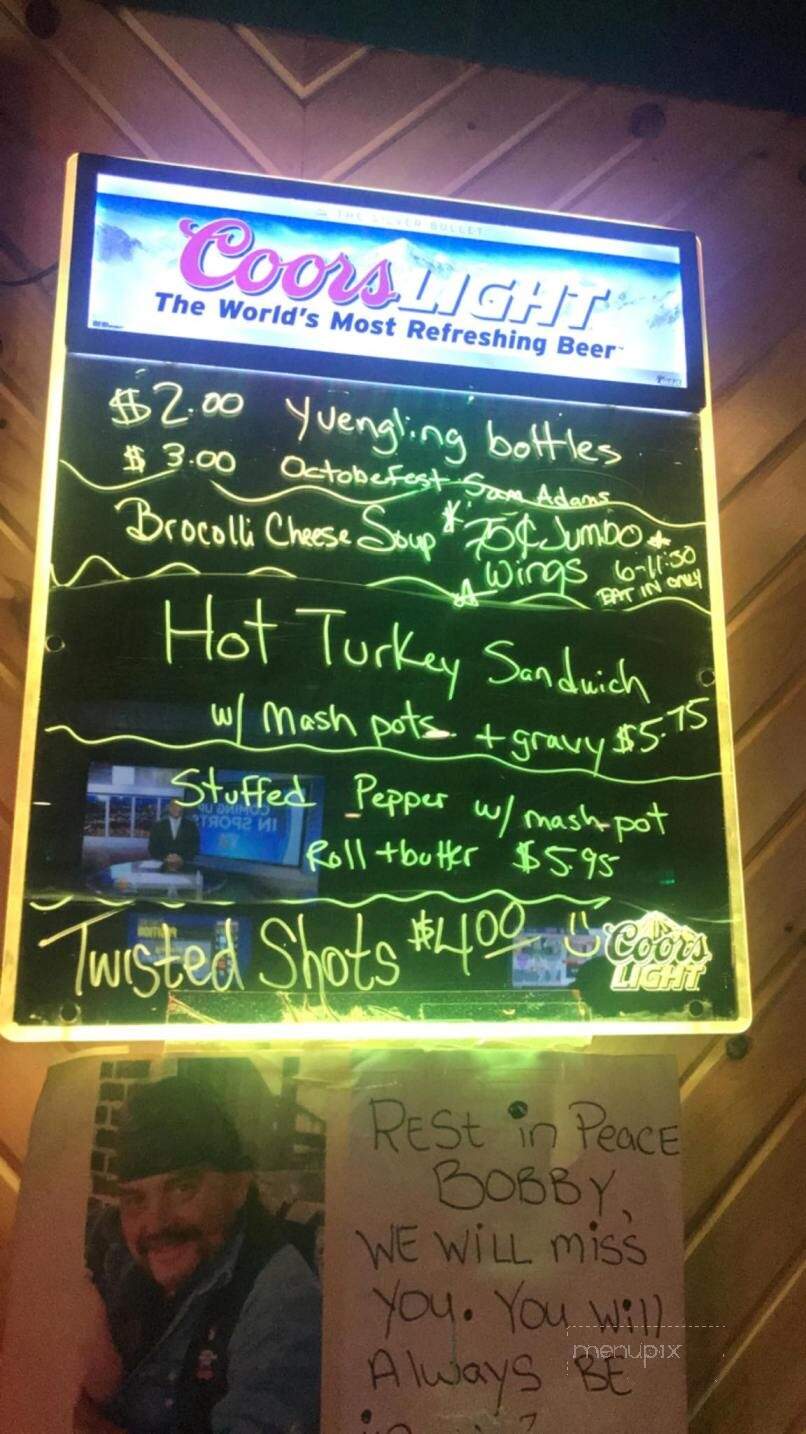 THE SILVER BULLET
Coors LIGHT
The World's Most Refreshing Beer
$2.00 Yuengling bottles
$3.00 Octobefest Sam Adams
Brocolli Cheese Soup 75¢ Jumbo
Wings 6-11:30
EAT IN ONLY
Hot Turkey Sandwich
w/ Mash pots + gravy $5.75
Stuffed Pepper w/ mash pot
Roll + butter $5.95
COMING UP
IN SPORTS
Twisted Shots $4.00
Coors
LIGHT
REST in PEACE
BOBBY,
WE WiLL miss
You. You Will
Always BE
menupix